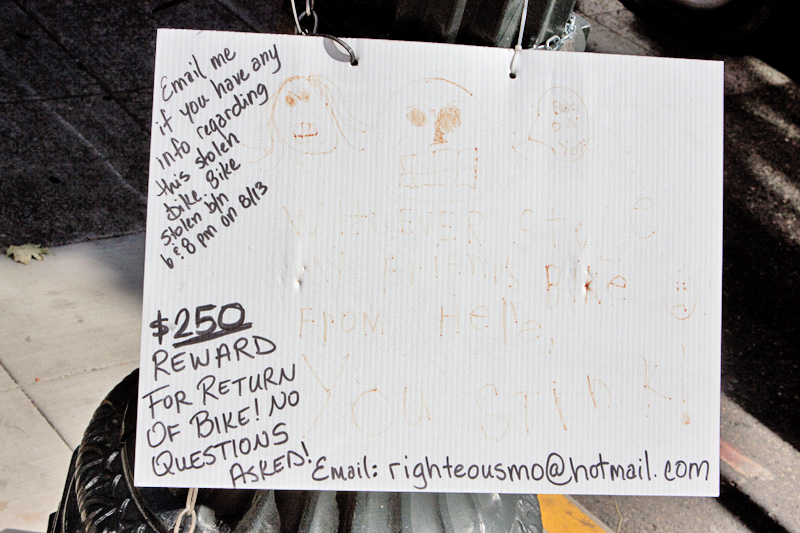 Email me
if you have any
info regarding
this stolen
bike. Bike
stolen b/n
6 & 8 pm on 8/13
WHOEVER STOLE
MY FRIENDS BIKE
FROM HERE,
YOU STINK.
$250
REWARD
FOR RETURN
OF BIKE! NO
QUESTIONS
ASKED!
Email: righteousmo@hotmail.com